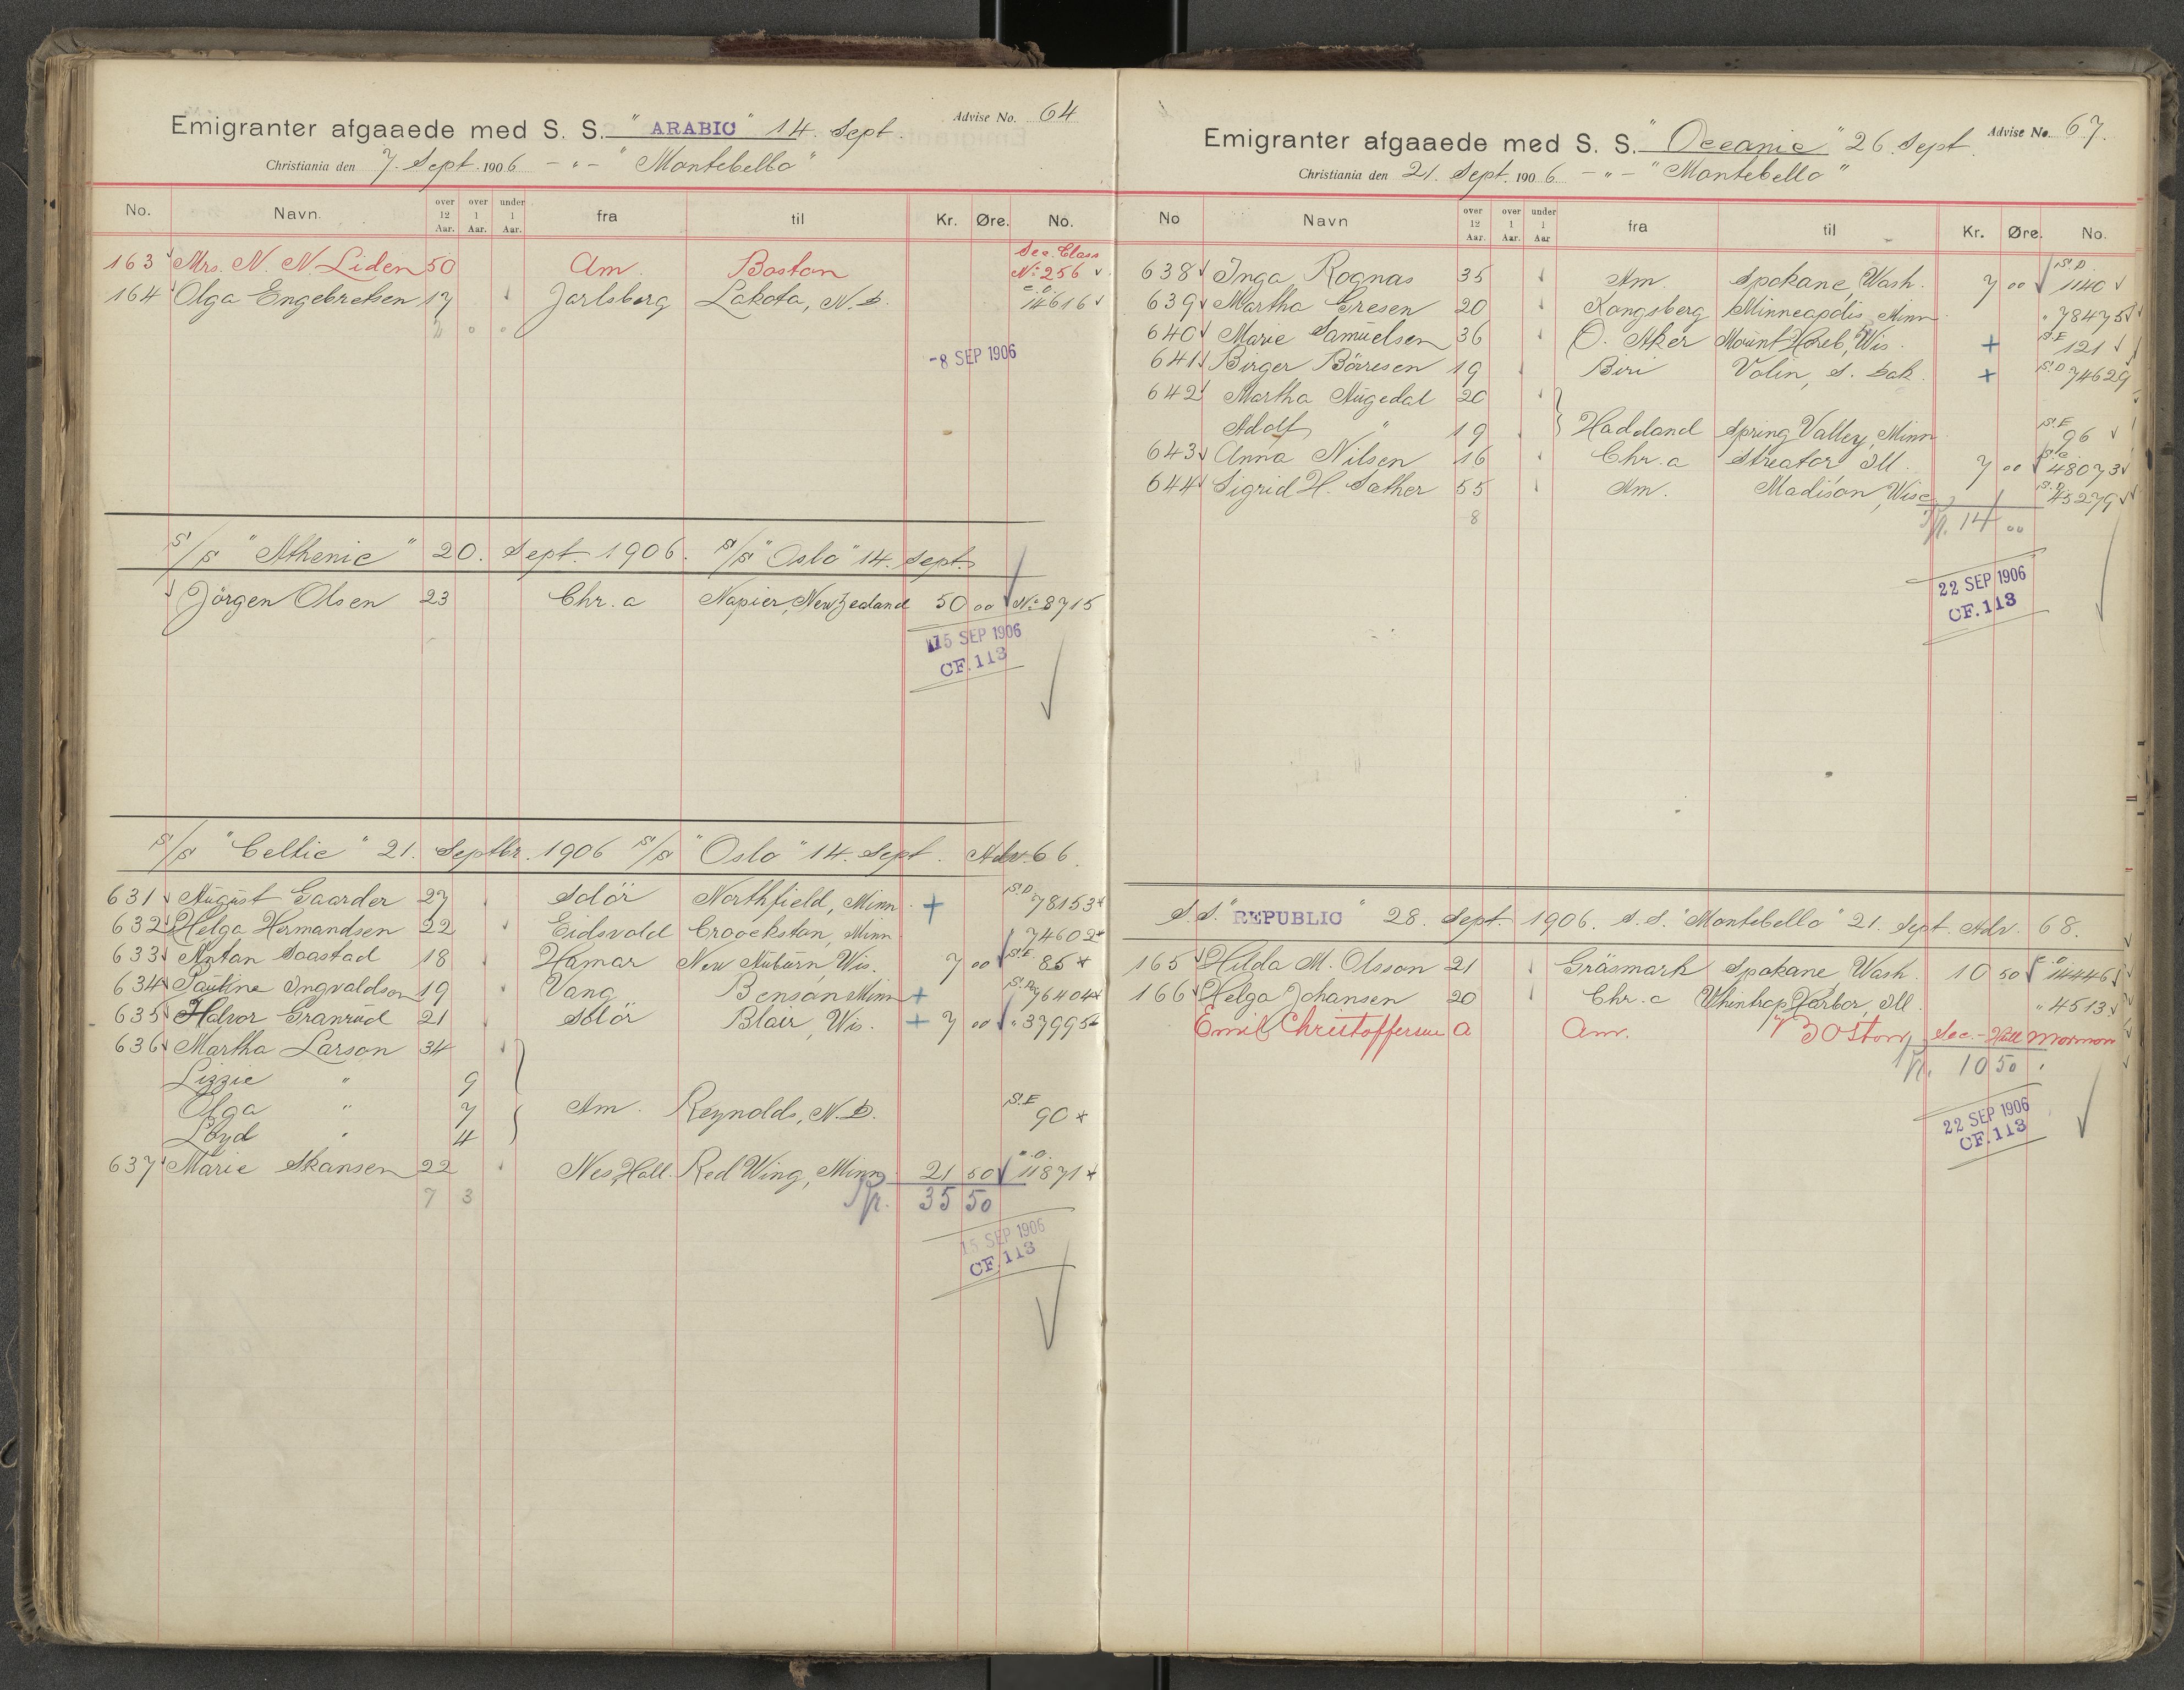 Advise No. 64
Emigranter afgaaede med S. S. "ARABIC" 14. Sept.
Christiania den 7. Sept. 1906 - " - "Montebello"
No. Navn. over 12 Aar. over 1 Aar. under 1 Aar. fra til Kr. Øre. No.
163 Mrs. N. N. Liden 50 Am. Boston Sec. Class No 256
164 Olga Engebretsen 17 Jarlsberg Lakota, N. D. C.O. 14616
2 0 0
-8 SEP 1906
S/S "Athenic" 20. Sept. 1906. S/S "Oslo" 14. Sept.
Jörgen Olsen 23 Chr.a Napier, New Zealand 50 00 No 8715
15 SEP 1906
CF. 113
S/S "Celtic" 21. Septbr. 1906 S/S "Oslo" 14. Sept. Adv. 66.
631 August Gaarder 27 Solör Northfield, Minn. + S.D 78153
632 Helga Hermandsen 22 Eidsvold Croockston, Minn 74602
633 Anton Saastad 18 Hamar New Auburn, Wis. 7 00 S.E 85
634 Pauline Ingvaldson 19 Vang Benson Minn + 76404
635 Halvor Granrud 21 Solör Blair, Wis. + 7 00 " 37995
636 Martha Larson 34
Lizzie " 9
Olga " 7 Am. Reynolds, N. D. S.E 90
Loyd " 4
637 Marie Skansen 22 Nes, Hall. Red Wing, Minn 21 50 11871
7 3 35 50
15 SEP 1906
CF. 113
Advise No. 67.
Emigranter afgaaede med S. S. "Oceanic" 26. Sept.
Christiania den 21. Sept. 1906 - " - "Montebello"
No Navn over 12 Aar. over 1 Aar. under 1 Aar fra til Kr. Øre. No.
638 Inga Rognas 35 Am. Spokane, Wash. 7 00 S.D 1140
639 Martha Gresen 20 Kongsberg Minneapolis, Minn " 78475
640 Marie Samuelsen 36 Ö. Aker Mount Horeb, Wis. + S.E 121
641 Birger Börresen 19 Biri Volin, S. Dak. + S.D 74629
642 Martha Augedal 20
Adolf " 19 Haddand Spring Valley, Minn. S.E 96
643 Anna Nilsen 16 Chr.a Streator Ill. 7 00 S.C. 48073
644 Sigrid H. Sæther 55 Am. Madison, Wisc. S.D. 45279
8 14 00
22 SEP 1906
CF. 113
S.S. "REPUBLIC" 28. Sept. 1906. S.S. "Montebello" 21. Sept. Adv. 68.
165 Hilda M. Olsson 21 Gräsmark Spokane, Wash. 10 50 C.O. 14446
166 Helga Johansen 20 Chr.a Whintrop Harbor, Ill. " 4513
Emil Christoffersen a Am. Boston Sec. - Hull Mormon
10 50
22 SEP 1906
CF. 113